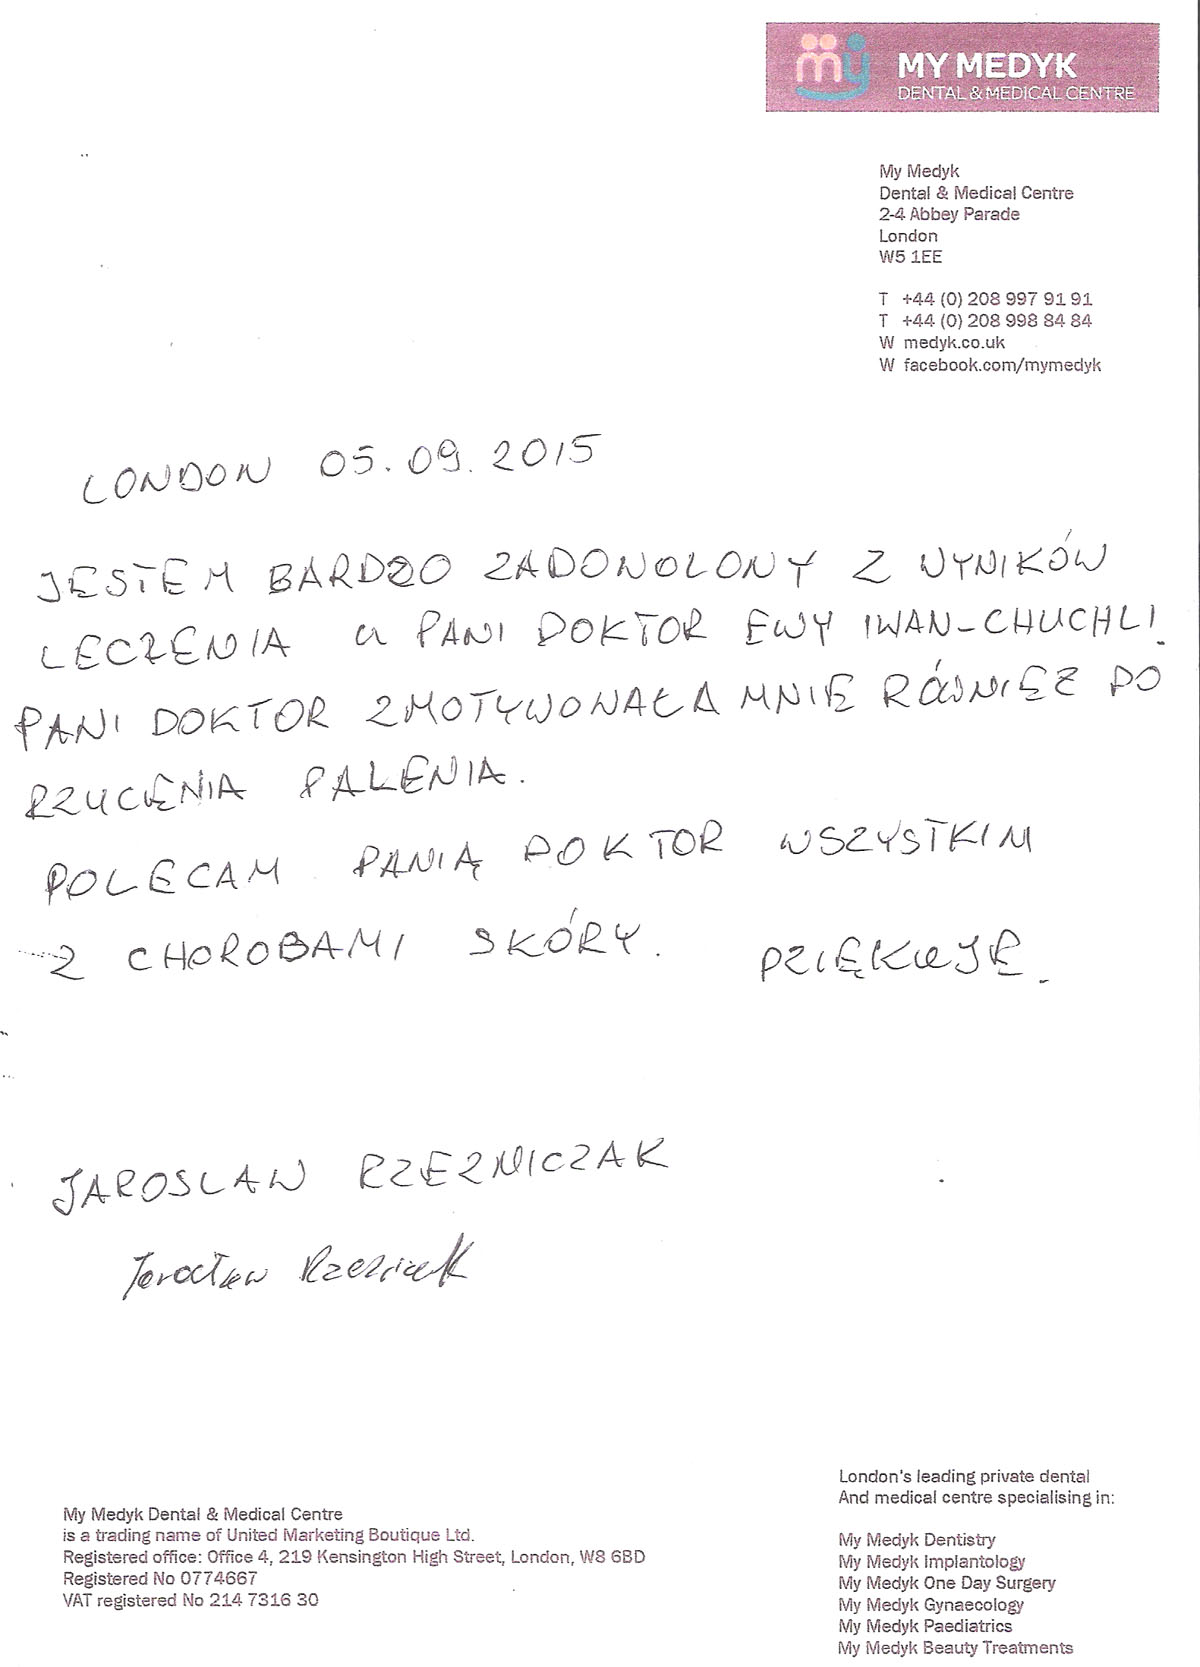 my MY MEDYK
DENTAL & MEDICAL CENTRE
My Medyk
Dental & Medical Centre
2-4 Abbey Parade
London
W5 1EE
T +44 (0) 208 997 91 91
T +44 (0) 208 998 84 84
W medyk.co.uk
W facebook.com/mymedyk
LONDON 05.09.2015
JESTEM BARDZO ZADOWOLONY Z WYNIKÓW
LECZENIA u PANI DOKTOR EWY IWAN-CHUCHLI.
PANI DOKTOR ZMOTYWOWAŁA MNIE RÓWNIEŻ DO
RZUCENIA PALENIA.
POLECAM PANIĄ DOKTOR WSZYSTKIM
Z CHOROBAMI SKÓRY. DZIĘKUJĘ.
JAROSLAW RZEZNICZAK
Jarosław
My Medyk Dental & Medical Centre
is a trading name of United Marketing Boutique Ltd.
Registered office: Office 4, 219 Kensington High Street, London, W8 6BD
Registered No 0774667
VAT registered No 214 7316 30
London's leading private dental
And medical centre specialising in:
My Medyk Dentistry
My Medyk Implantology
My Medyk One Day Surgery
My Medyk Gynaecology
My Medyk Paediatrics
My Medyk Beauty Treatments